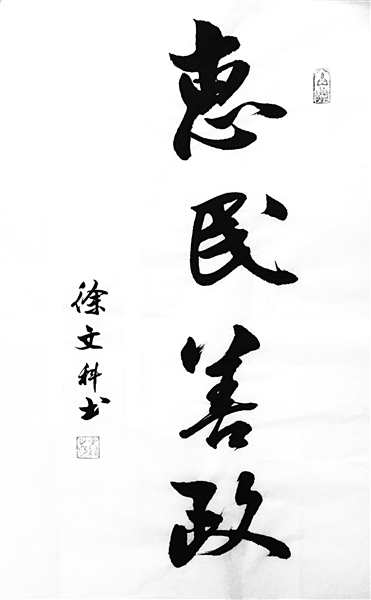 惠民善政
徐文科书